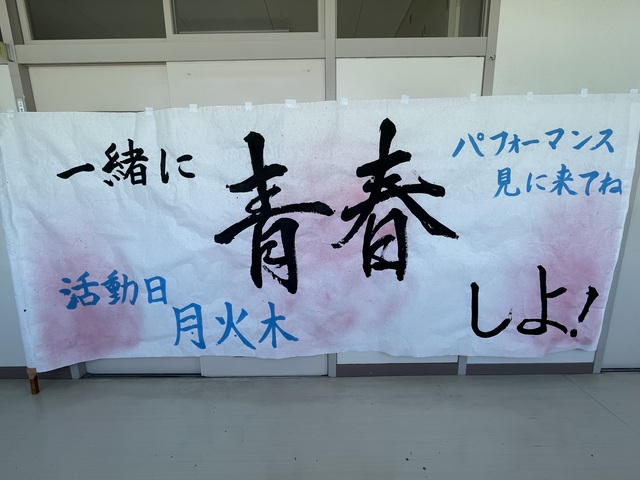 一緒に
青春
しよ!
パフォーマンス
見に来てね
活動日
月火木